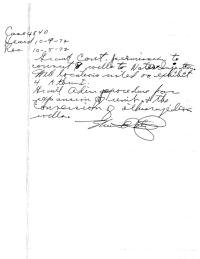 Case 4840
Heard 10-9-72
Rec. 10-9-72
Grant Cont. permission to
convert 8 wells to Water injection
All locations listed on exhibit
4 &
Grant Admin procedure for
expansion of unit & the
conversion of additional
wells